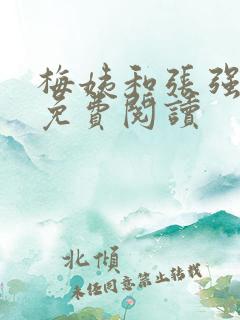 梅姨和张强
免費閱讀
北傾
未经同意禁止转载